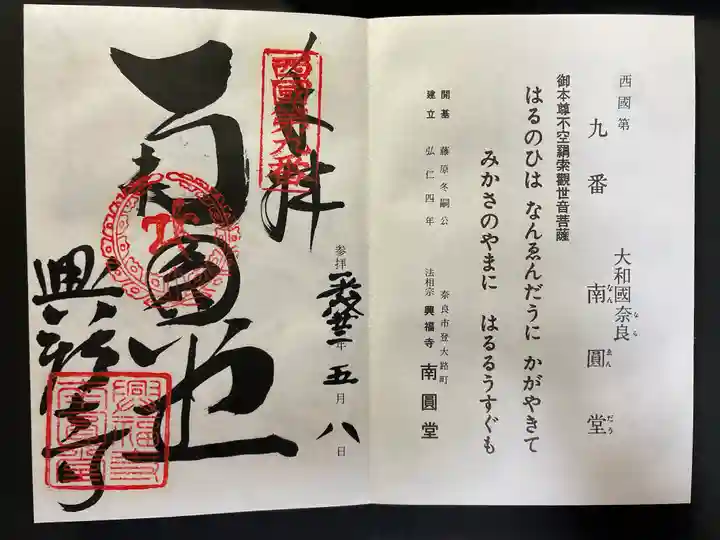 西國第
九番
大和國奈良
なら
南圓堂
なんゑんだう
御本尊不空羂索觀世音菩薩
はるのひは なんゑんだうに かがやきて
みかさのやまに はるるうすぐも
開基 藤原冬嗣公
建立 弘仁四年
奈良市登大路町
法相宗 興福寺 南圓堂
奉拝
西國第九番
参拝 平成廿二年 五月八日
南圓堂
興福寺